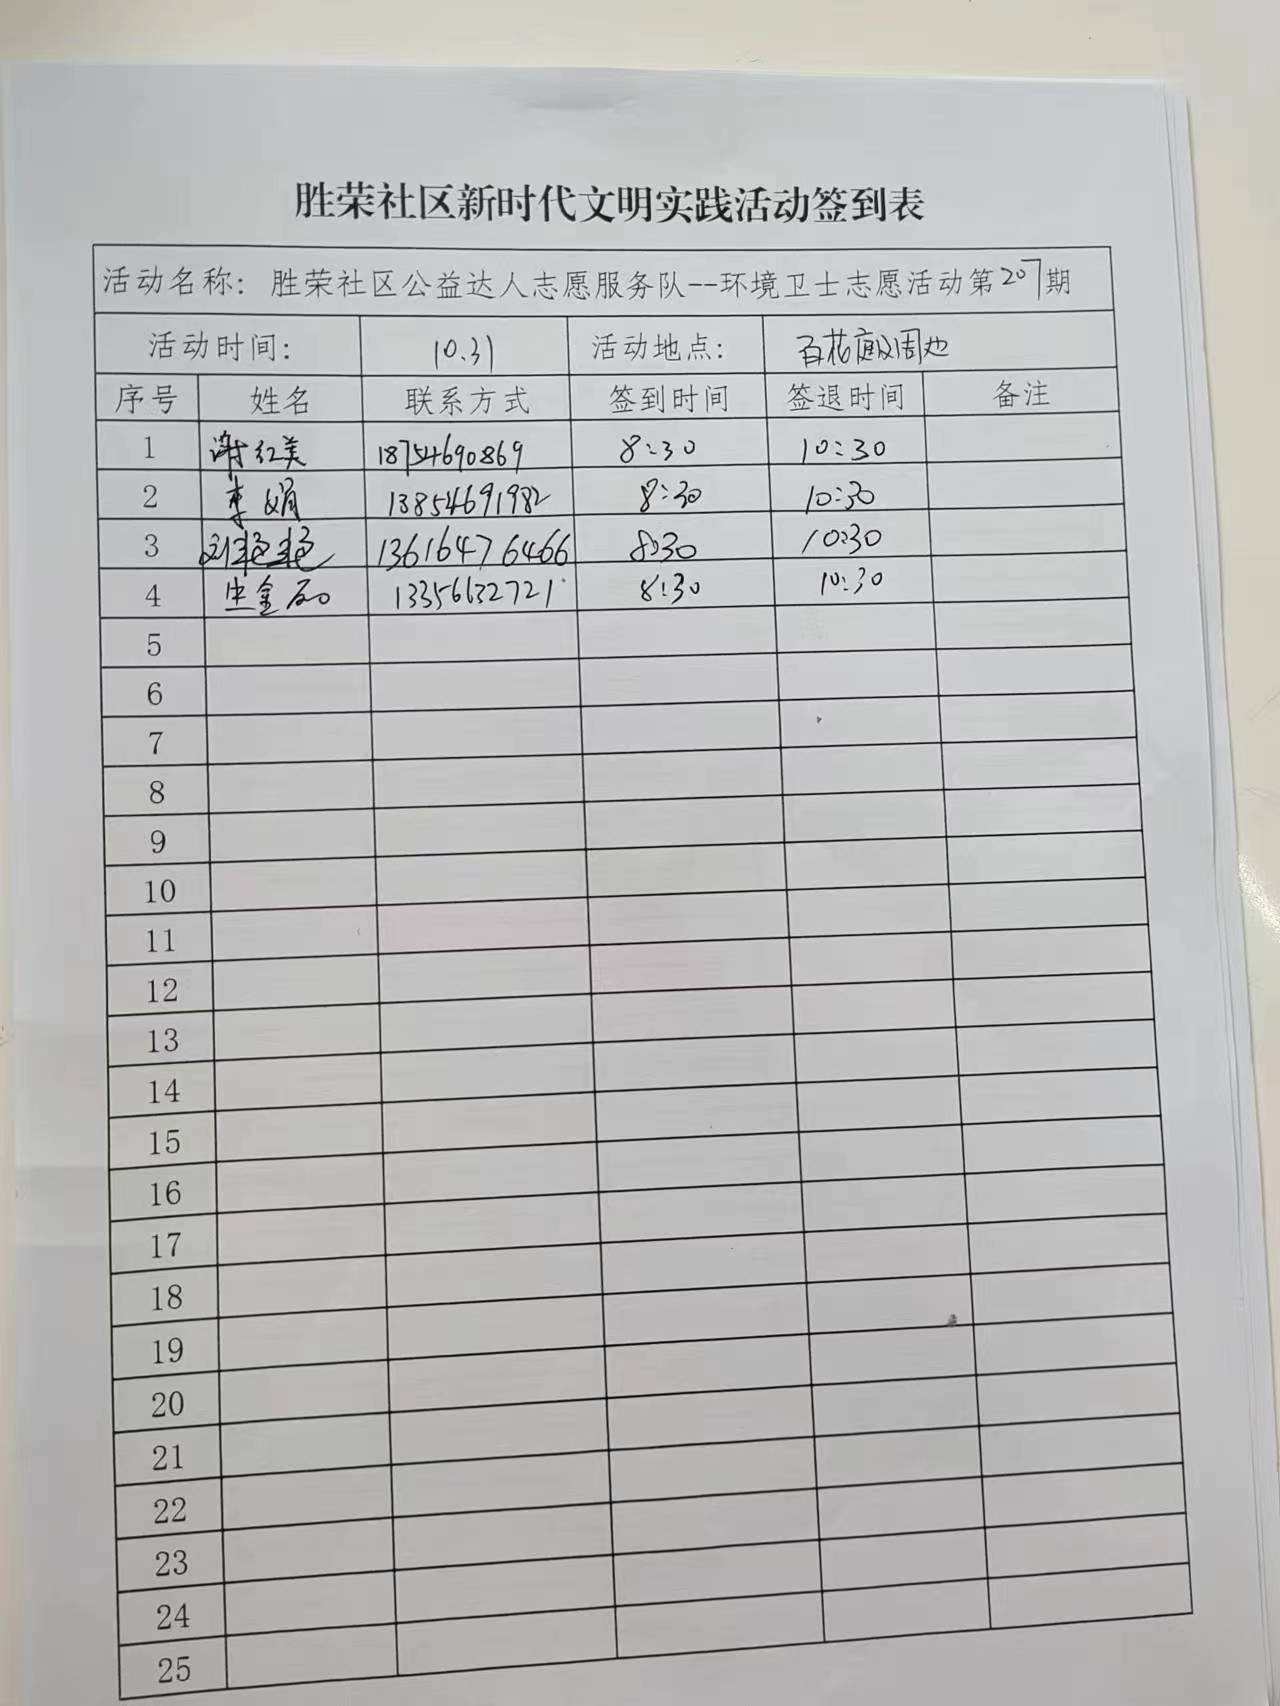 胜荣社区新时代文明实践活动签到表
活动名称：胜荣社区公益达人志愿服务队--环境卫士志愿活动第207期
活动时间： 10.31 活动地点： 百花庭及周边
序号 姓名 联系方式 签到时间 签退时间 备注
1 谢红美 18754690869 8:30 10:30
2 李娟 13854691982 8:30 10:30
3 刘艳艳 13616476466 8:30 10:30
4 金 13356632721 8:30 10:30
5
6
7
8
9
10
11
12
13
14
15
16
17
18
19
20
21
22
23
24
25